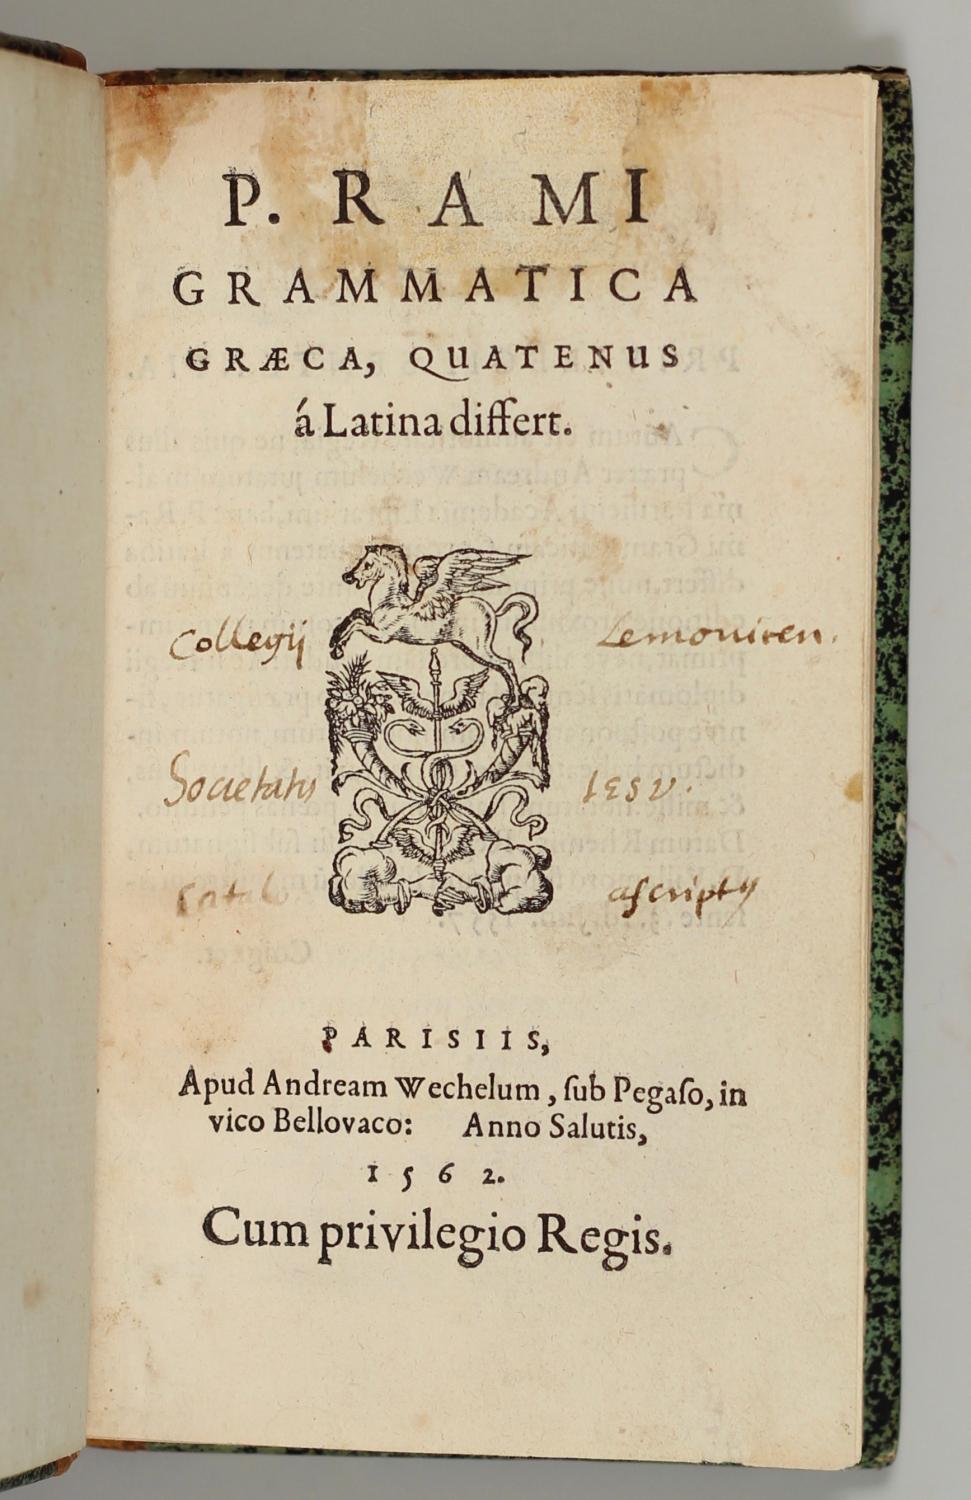 P. RAMI
GRAMMATICA
GRÆCA, QUATENUS
á Latina differt.
Collegij Lemoviten.
Societatis Iesu.
Catal ascriptus
PARISIIS,
Apud Andream Wechelum, ſub Pegaſo, in
vico Bellovaco: Anno Salutis,
1562.
Cum privilegio Regis.